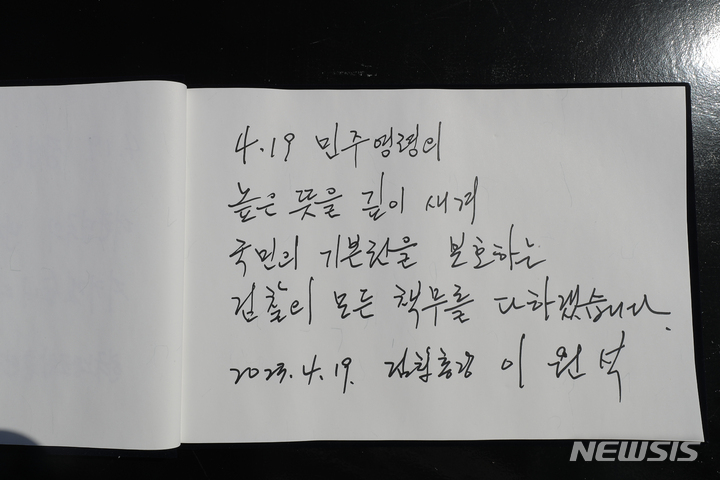 4.19 민주영령의
높은 뜻을 깊이 새겨
국민의 기본권을 보호하는
검찰의 모든 책무를 다하겠습니다.
2023.4.19. 검찰총장 이원석
NEWSIS